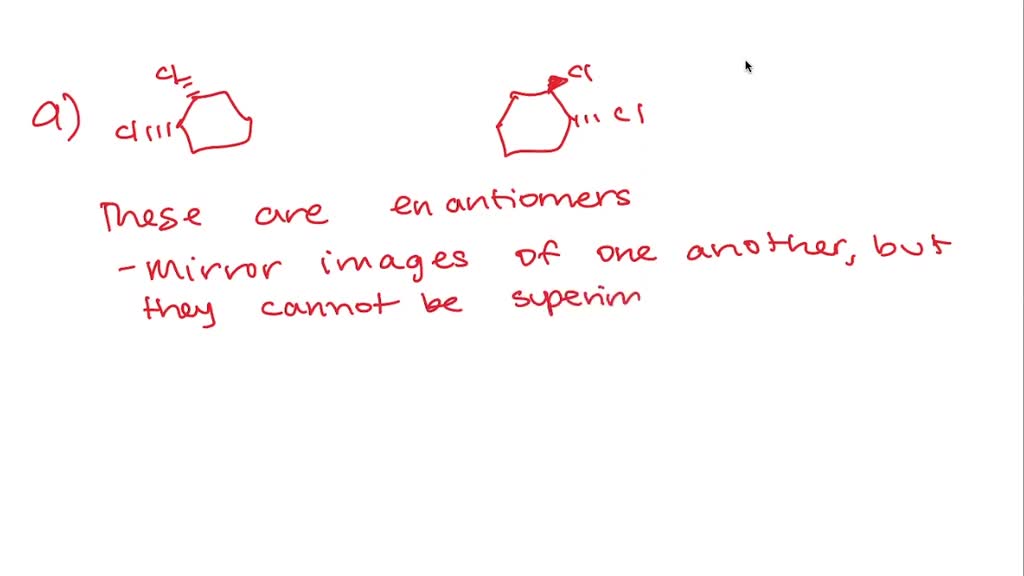 a)
Cl
Cl
Cl
Cl
These are enantiomers
- mirror images of one another, but
they cannot be superim